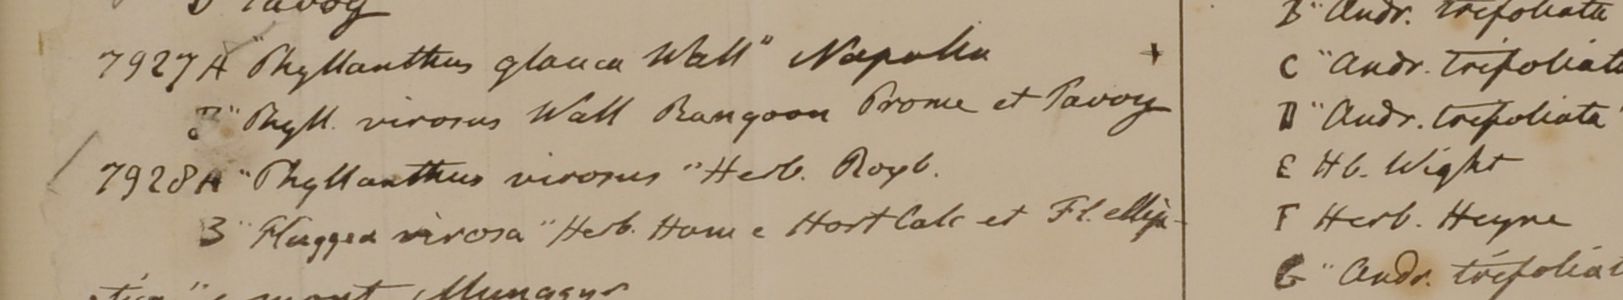 D Tavoy
7927 A "Phyllanthus glauca Wall" Napalia
B "Phyll. virosus Wall Rangoon Prome et Tavoy
7928 A "Phyllanthus virosus" Herb. Roxb.
B "Fluggea virosa" Herb. Ham e Hort Calc et Fl. ellip-
tica" e mont Mungger
B "Andr. trifoliata
C "Andr. trifoliata
D "Andr. trifoliata
E Hb. Wight
F Herb. Heyne
G "Andr. trifoliat